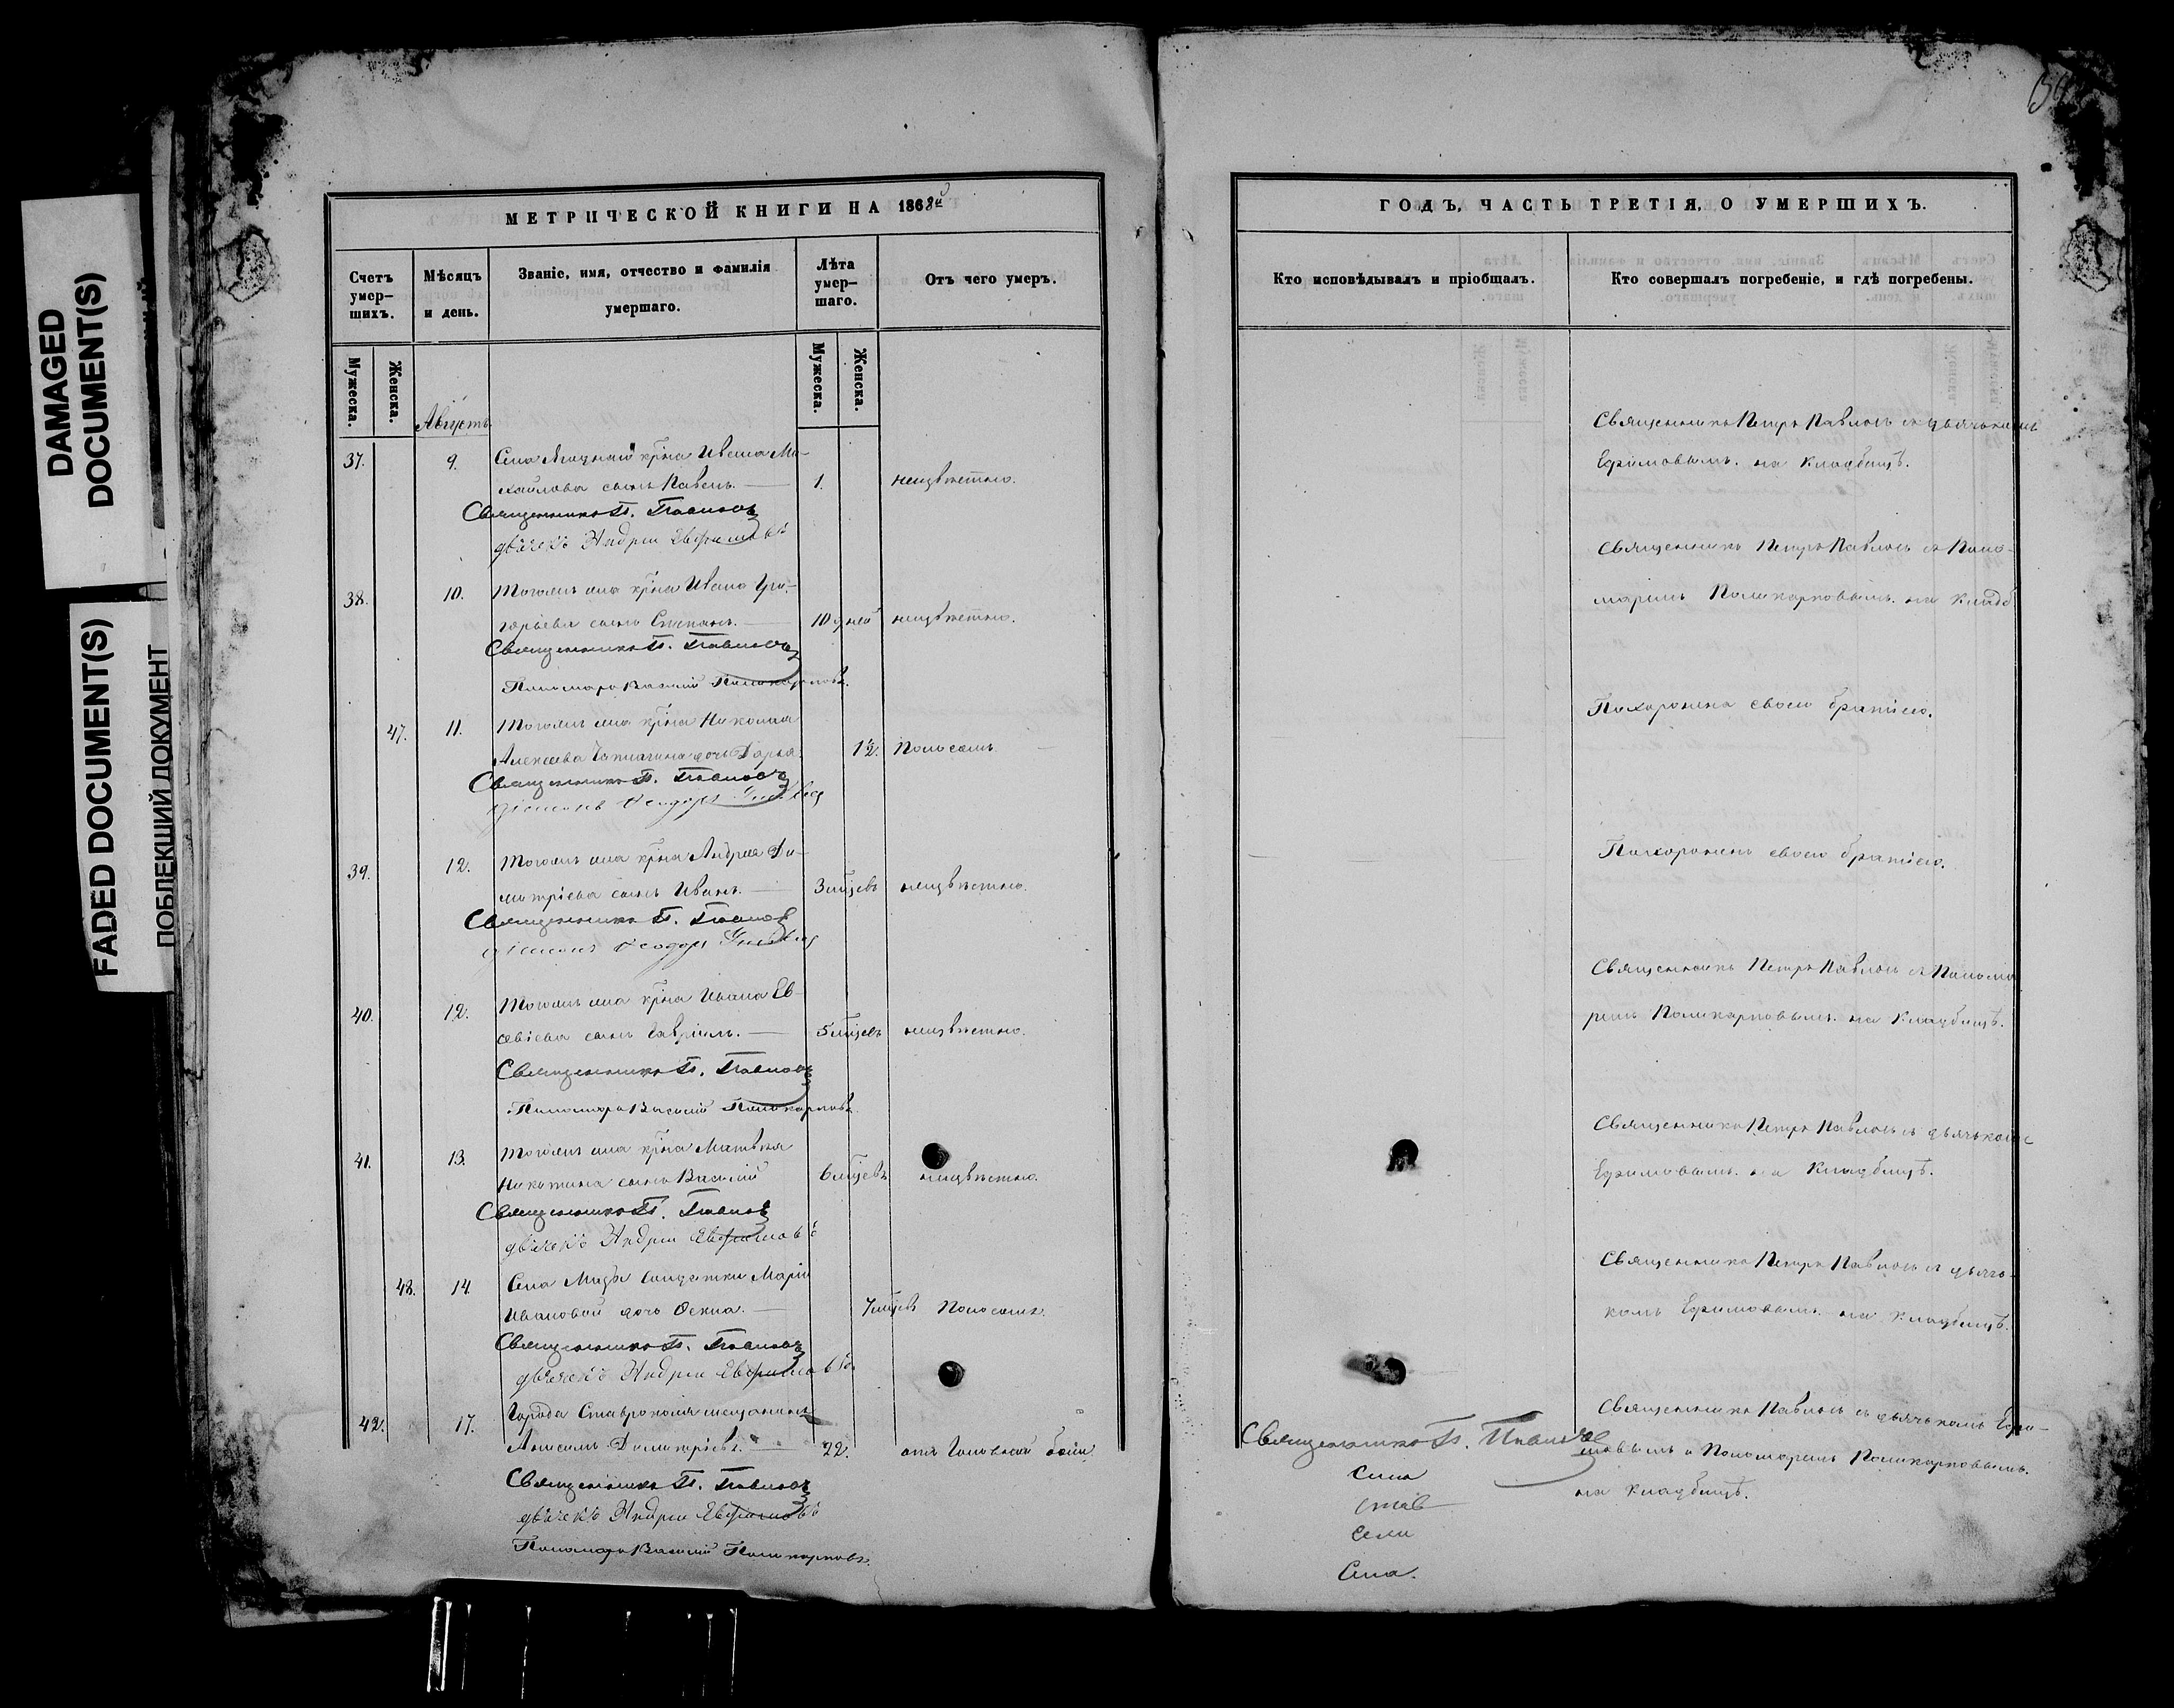 DAMAGED
DOCUMENT(S)
FADED DOCUMENT(S)
ПОБЛЕКШИЙ ДОКУМЕНТ
МЕТРИЧЕСКОЙ КНИГИ НА 1868й
Счетъ умер-
шихъ.
Мѣсяцъ
и день.
Званіе, имя, отчество и фамилія
умершаго.
Лѣта
умер-
шаго.
Отъ чего умеръ.
Мужеска.
Женска.
Мужеска.
Женска.
Августъ
37.
9.
Села крна Ивана Ми-
хайлова сынъ Павелъ.
1.
неизвѣстно.
Священникъ П. Павловъ
дьячекъ Андрей Евфимовъ
38.
10.
Тогожъ села крна Ивана Гри-
горьева сынъ Степанъ.
10 дней
неизвѣстно.
Священникъ П. Павловъ
Пономарь Василий Поликарповъ.
47.
11.
Тогожъ села крна Николая
Алексѣева дочь Дарья.
1½.
Поносомъ.
Священникъ П. Павловъ
Діаконъ Ѳеодоръ
39.
12.
Тогожъ села крна Андрея Ди-
митріева сынъ Иванъ.
3 мцевъ
неизвѣстно.
Священникъ П. Павловъ
Діаконъ Ѳеодоръ
40.
12.
Тогожъ села крна Ивана Ев-
севіева сынъ Гавріилъ.
5 мцевъ
неизвѣстно.
Священникъ П. Павловъ
Пономарь Василий Поликарповъ.
41.
13.
Тогожъ села крна Матвѣя
Никитина сынъ Василій
6 мцевъ
неизвѣстно.
Священникъ П. Павловъ
дьячекъ Андрей Евфимовъ
48.
14.
Села солдатки Маріи
Ивановой дочь Ѳекла.
7 мцев
Поносомъ.
Священникъ П. Павловъ
дьячекъ Андрей Евфимовъ
42.
17.
Города Ставрополя мещанинъ
Анисимъ Димитріевъ.
22.
отъ Головной боли
Священникъ П. Павловъ
дьячекъ Андрей Евфимовъ
Пономарь Василий Поликарповъ.
ГОДЪ, ЧАСТЬ ТРЕТІЯ, О УМЕРШИХЪ.
Кто исповѣдывалъ и пріобщалъ.
Кто совершалъ погребеніе, и гдѣ погребены.
Священникъ Петръ Павловъ съ дьячькомъ
Ефимовымъ. на кладбищѣ.
Священникъ Петръ Павловъ съ Поно-
маремъ Поликарповымъ. на кладб.
Похоронена своею братіею.
Похороненъ своею братіею.
Священникъ Петръ Павловъ съ Понома
ремъ Поликарповымъ. на кладбищѣ.
Священникъ Петръ Павловъ съ дьячькомъ
Ефимовымъ. на кладбищѣ.
Священникъ Петръ Павловъ съ дьячь-
комъ Ефимовымъ. на кладбищѣ.
Священникъ П. Павловъ
Священникъ Павловъ съ дьячькомъ Ефи-
мовымъ и Пономаремъ Поликарповымъ.
на кладбищѣ.
Села
Села.